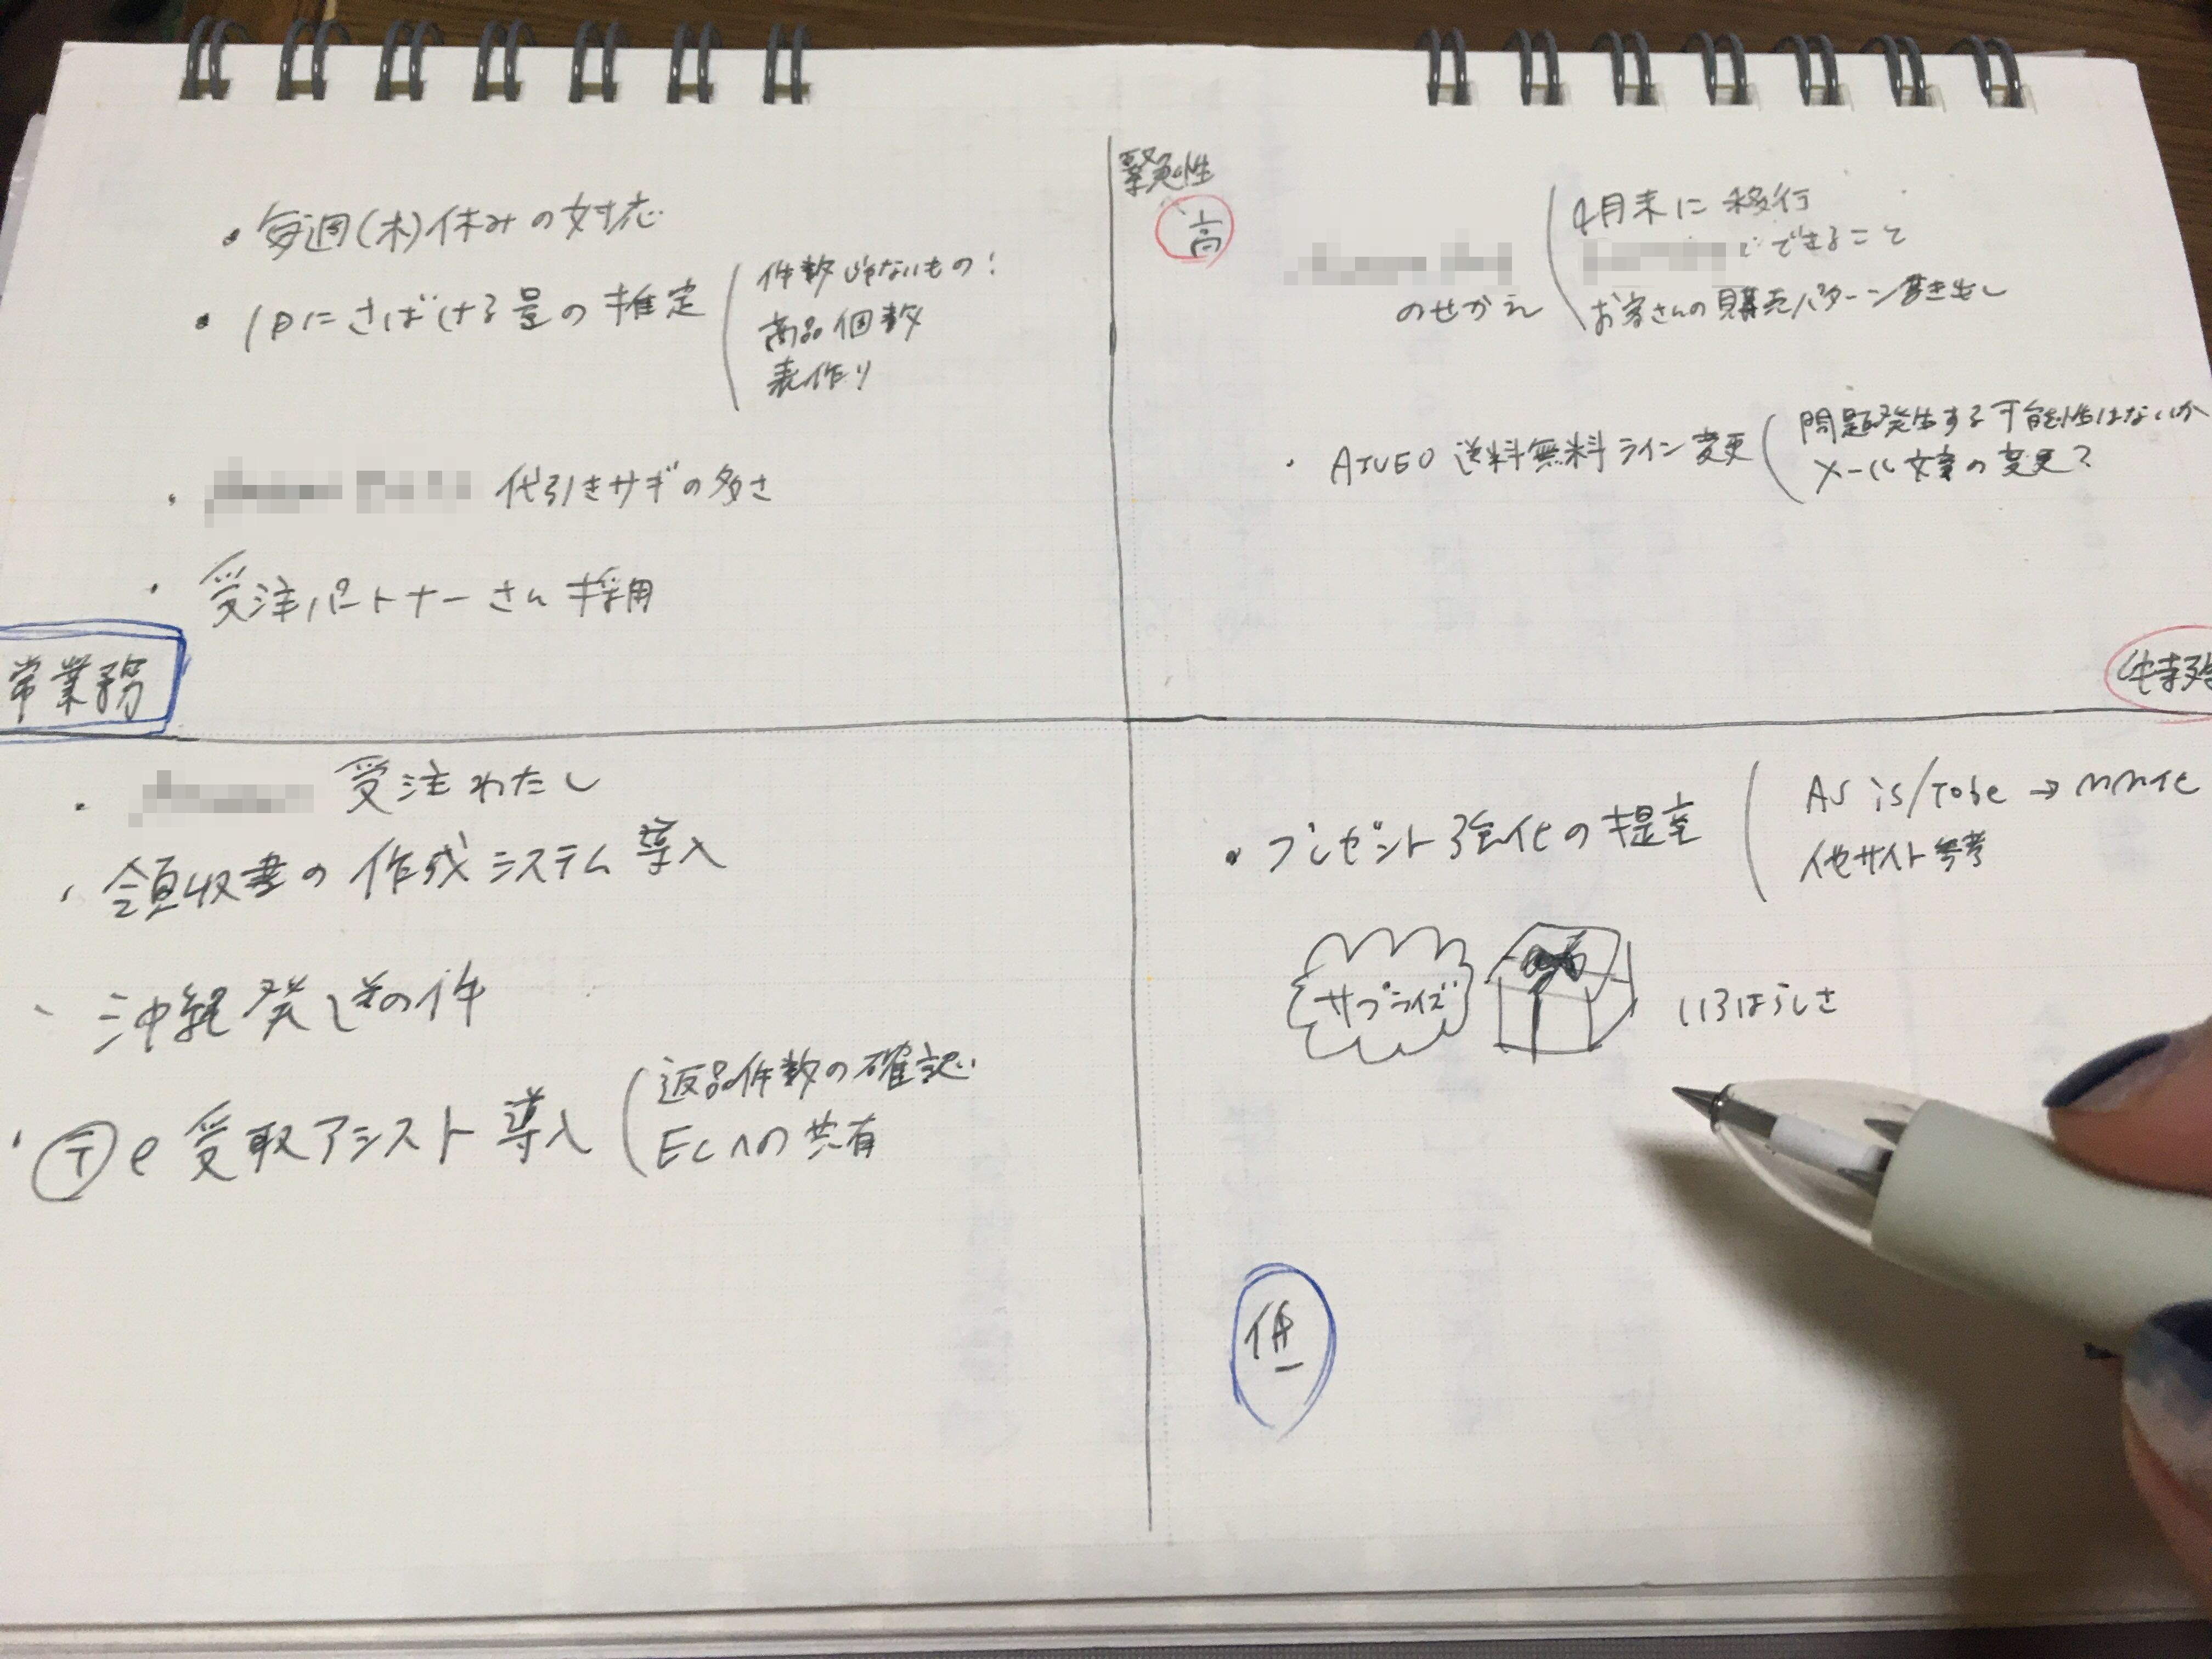 緊急性
高
・毎週(木)休みの対応
・1日にさばける量の推定
件数じゃないもの!
商品個数
表作り
・代引きサギの多さ
・受注パートナーさん採用
常業務
4月末に移行
できること
お客さんの購売パターン書き出し
のせかえ
・送料無料ライン変更
問題発生する可能性はないか
メール文章の変更?
特殊
・受注わたし
・領収書の作成システム導入
・沖縄発送の件
・〒e受取アシスト導入
返品件数の確認
ECへの共有
・プレゼント強化の提案
AS is/Tobe →
他サイト参考
サプライズ
低